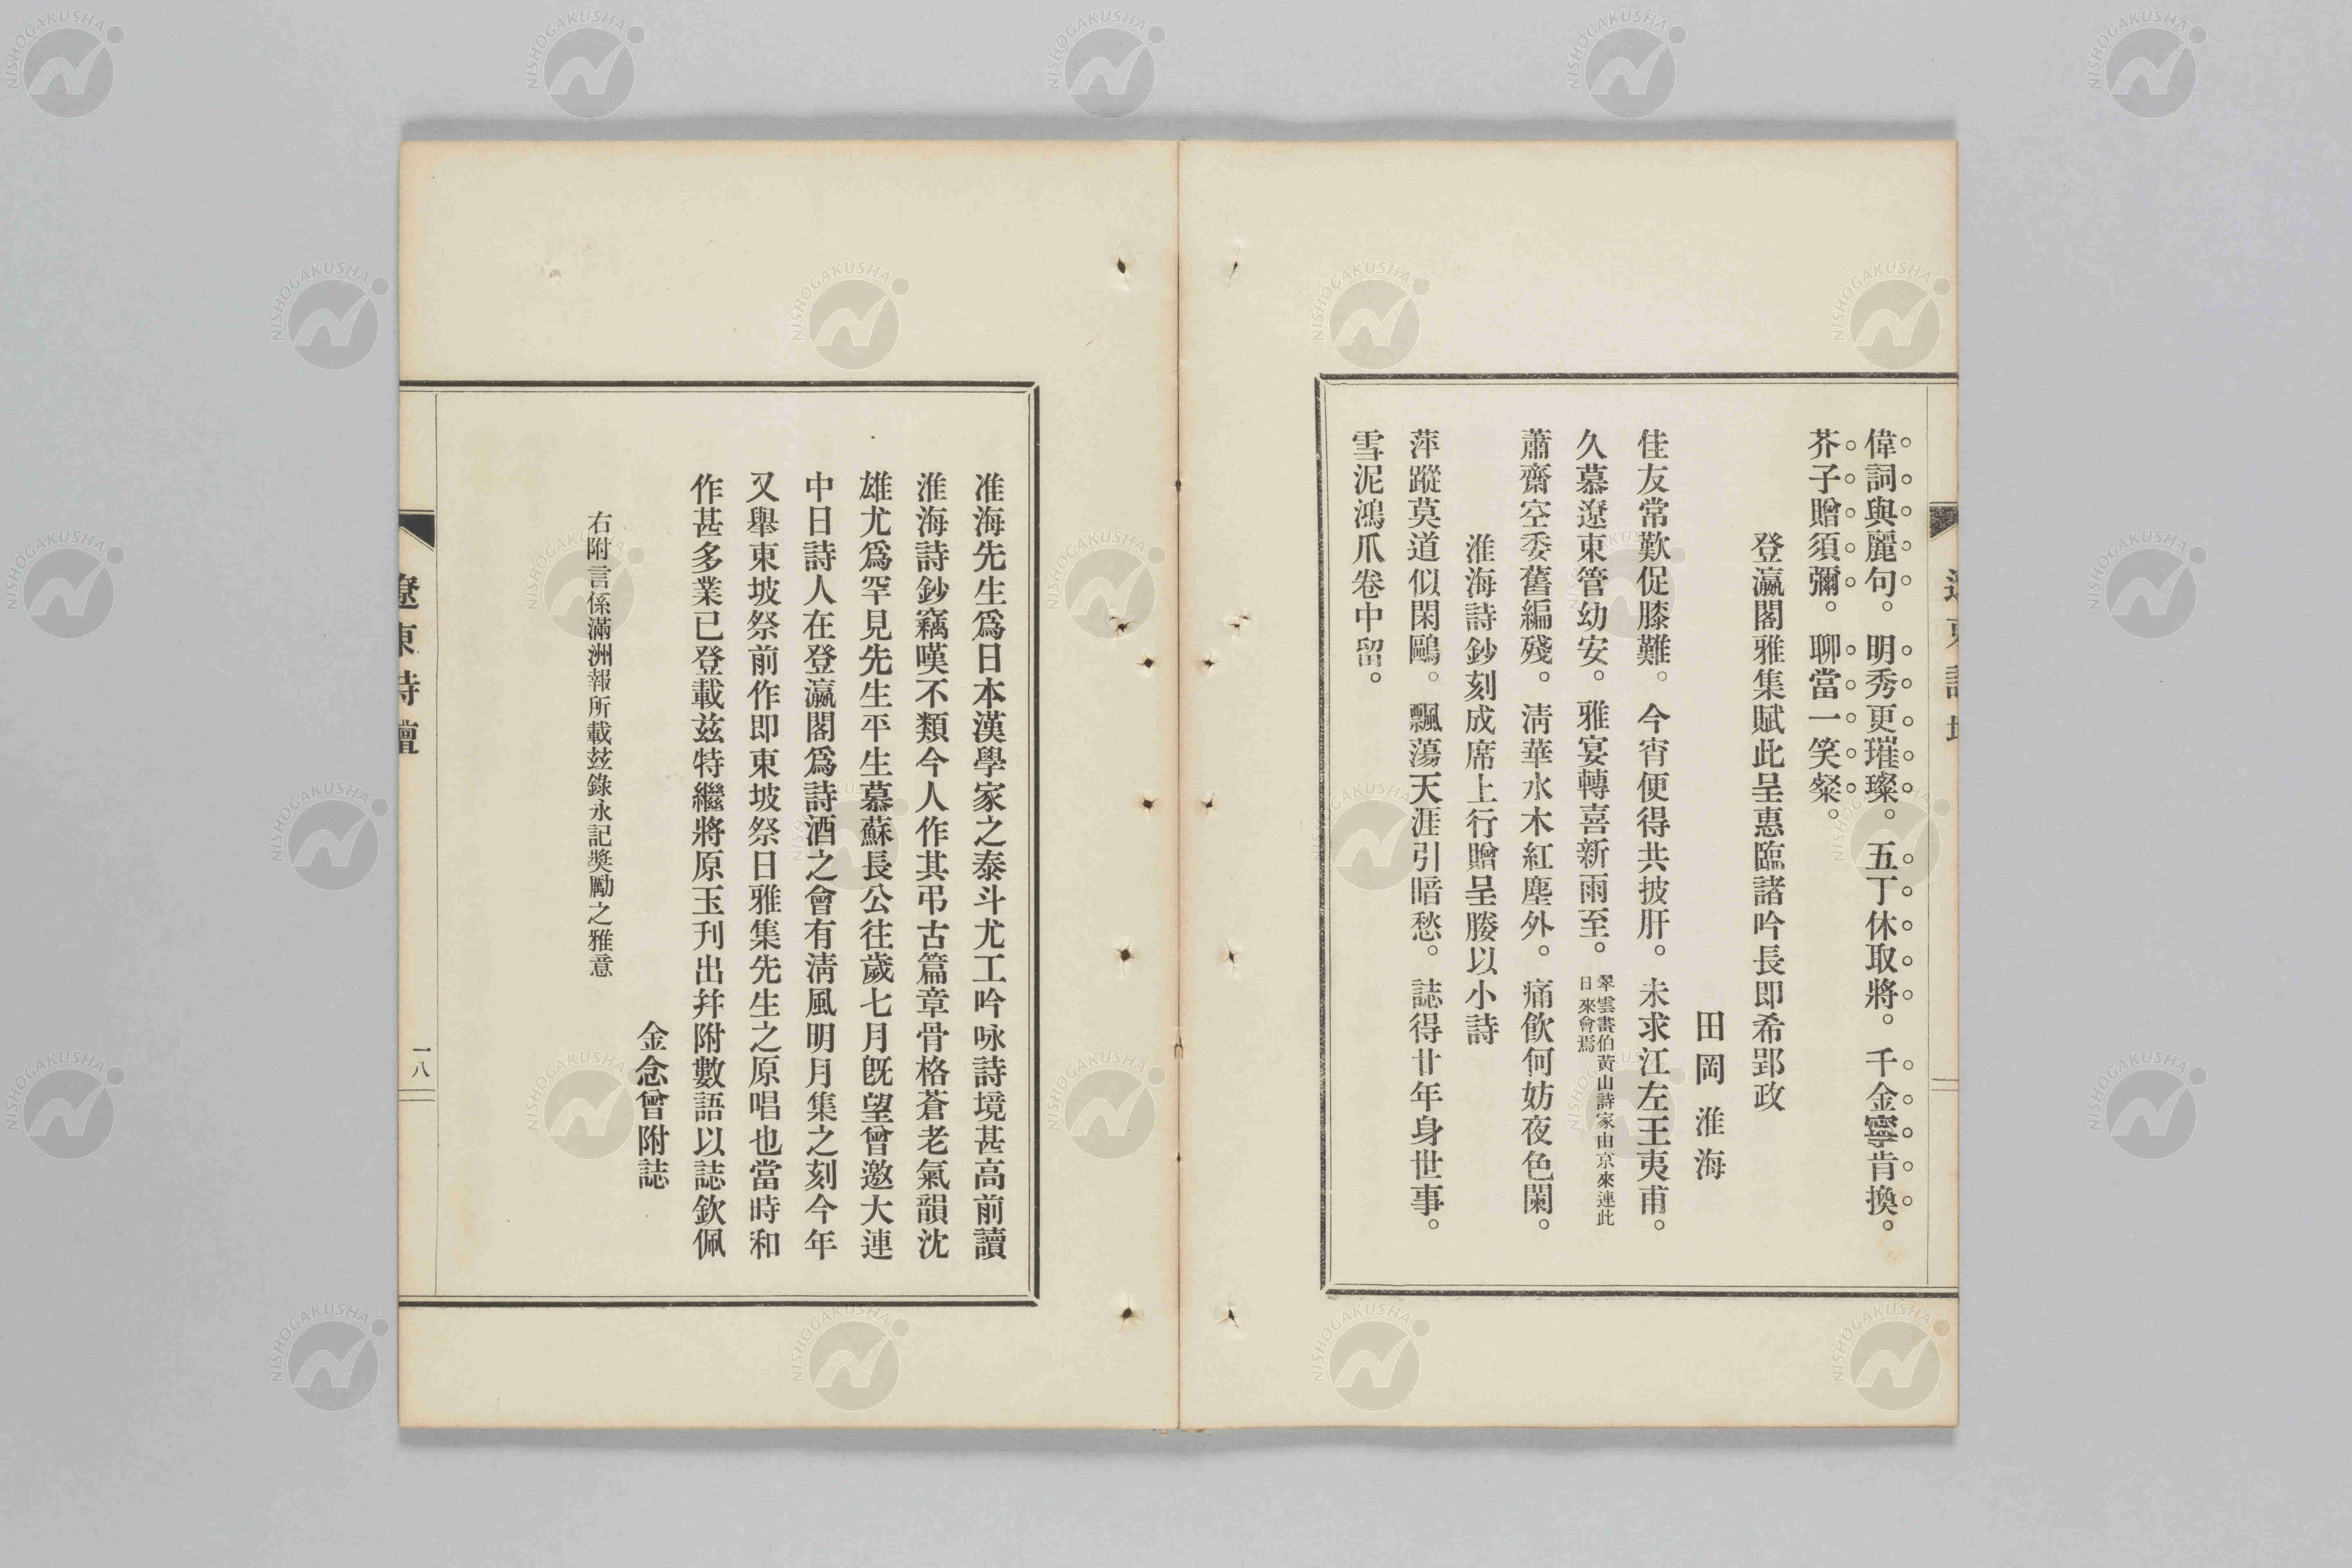 偉詞與麗句。明秀更璀璨。五丁休取將。千金寧肯換。
芥子贈須彌。聊當一笑粲。
登瀛閣雅集賦此呈惠臨諸吟長即希郢政
田岡淮海
佳友常歎促膝難。今宵便得共披肝。未求江左王夷甫。
久慕遼東管幼安。雅宴轉喜新雨至。翠雲畫伯黃山詩家由京來連此
日來會焉
蕭齋空委舊編殘。淸華水木紅塵外。痛飮何妨夜色闌。
淮海詩鈔刻成席上行贈呈媵以小詩
萍蹤莫道似閑鷗。飄蕩天涯引暗愁。誌得廿年身世事。
雪泥鴻爪卷中留。
淮海先生爲日本漢學家之泰斗尤工吟咏詩境甚高前讀
淮海詩鈔竊嘆不類今人作其弔古篇章骨格蒼老氣韻沈
雄尤爲罕見先生平生慕蘇長公往歲七月旣望曾邀大連
中日詩人在登瀛閣爲詩酒之會有淸風明月集之刻今年
又擧東坡祭前作即東坡祭日雅集先生之原唱也當時和
作甚多業已登載玆特繼將原玉刋出幷附數語以誌欽佩
金念曾附誌
右附言係滿洲報所載玆錄永記奬勵之雅意
遼東詩壇
一八
NISHOGAKUSHA